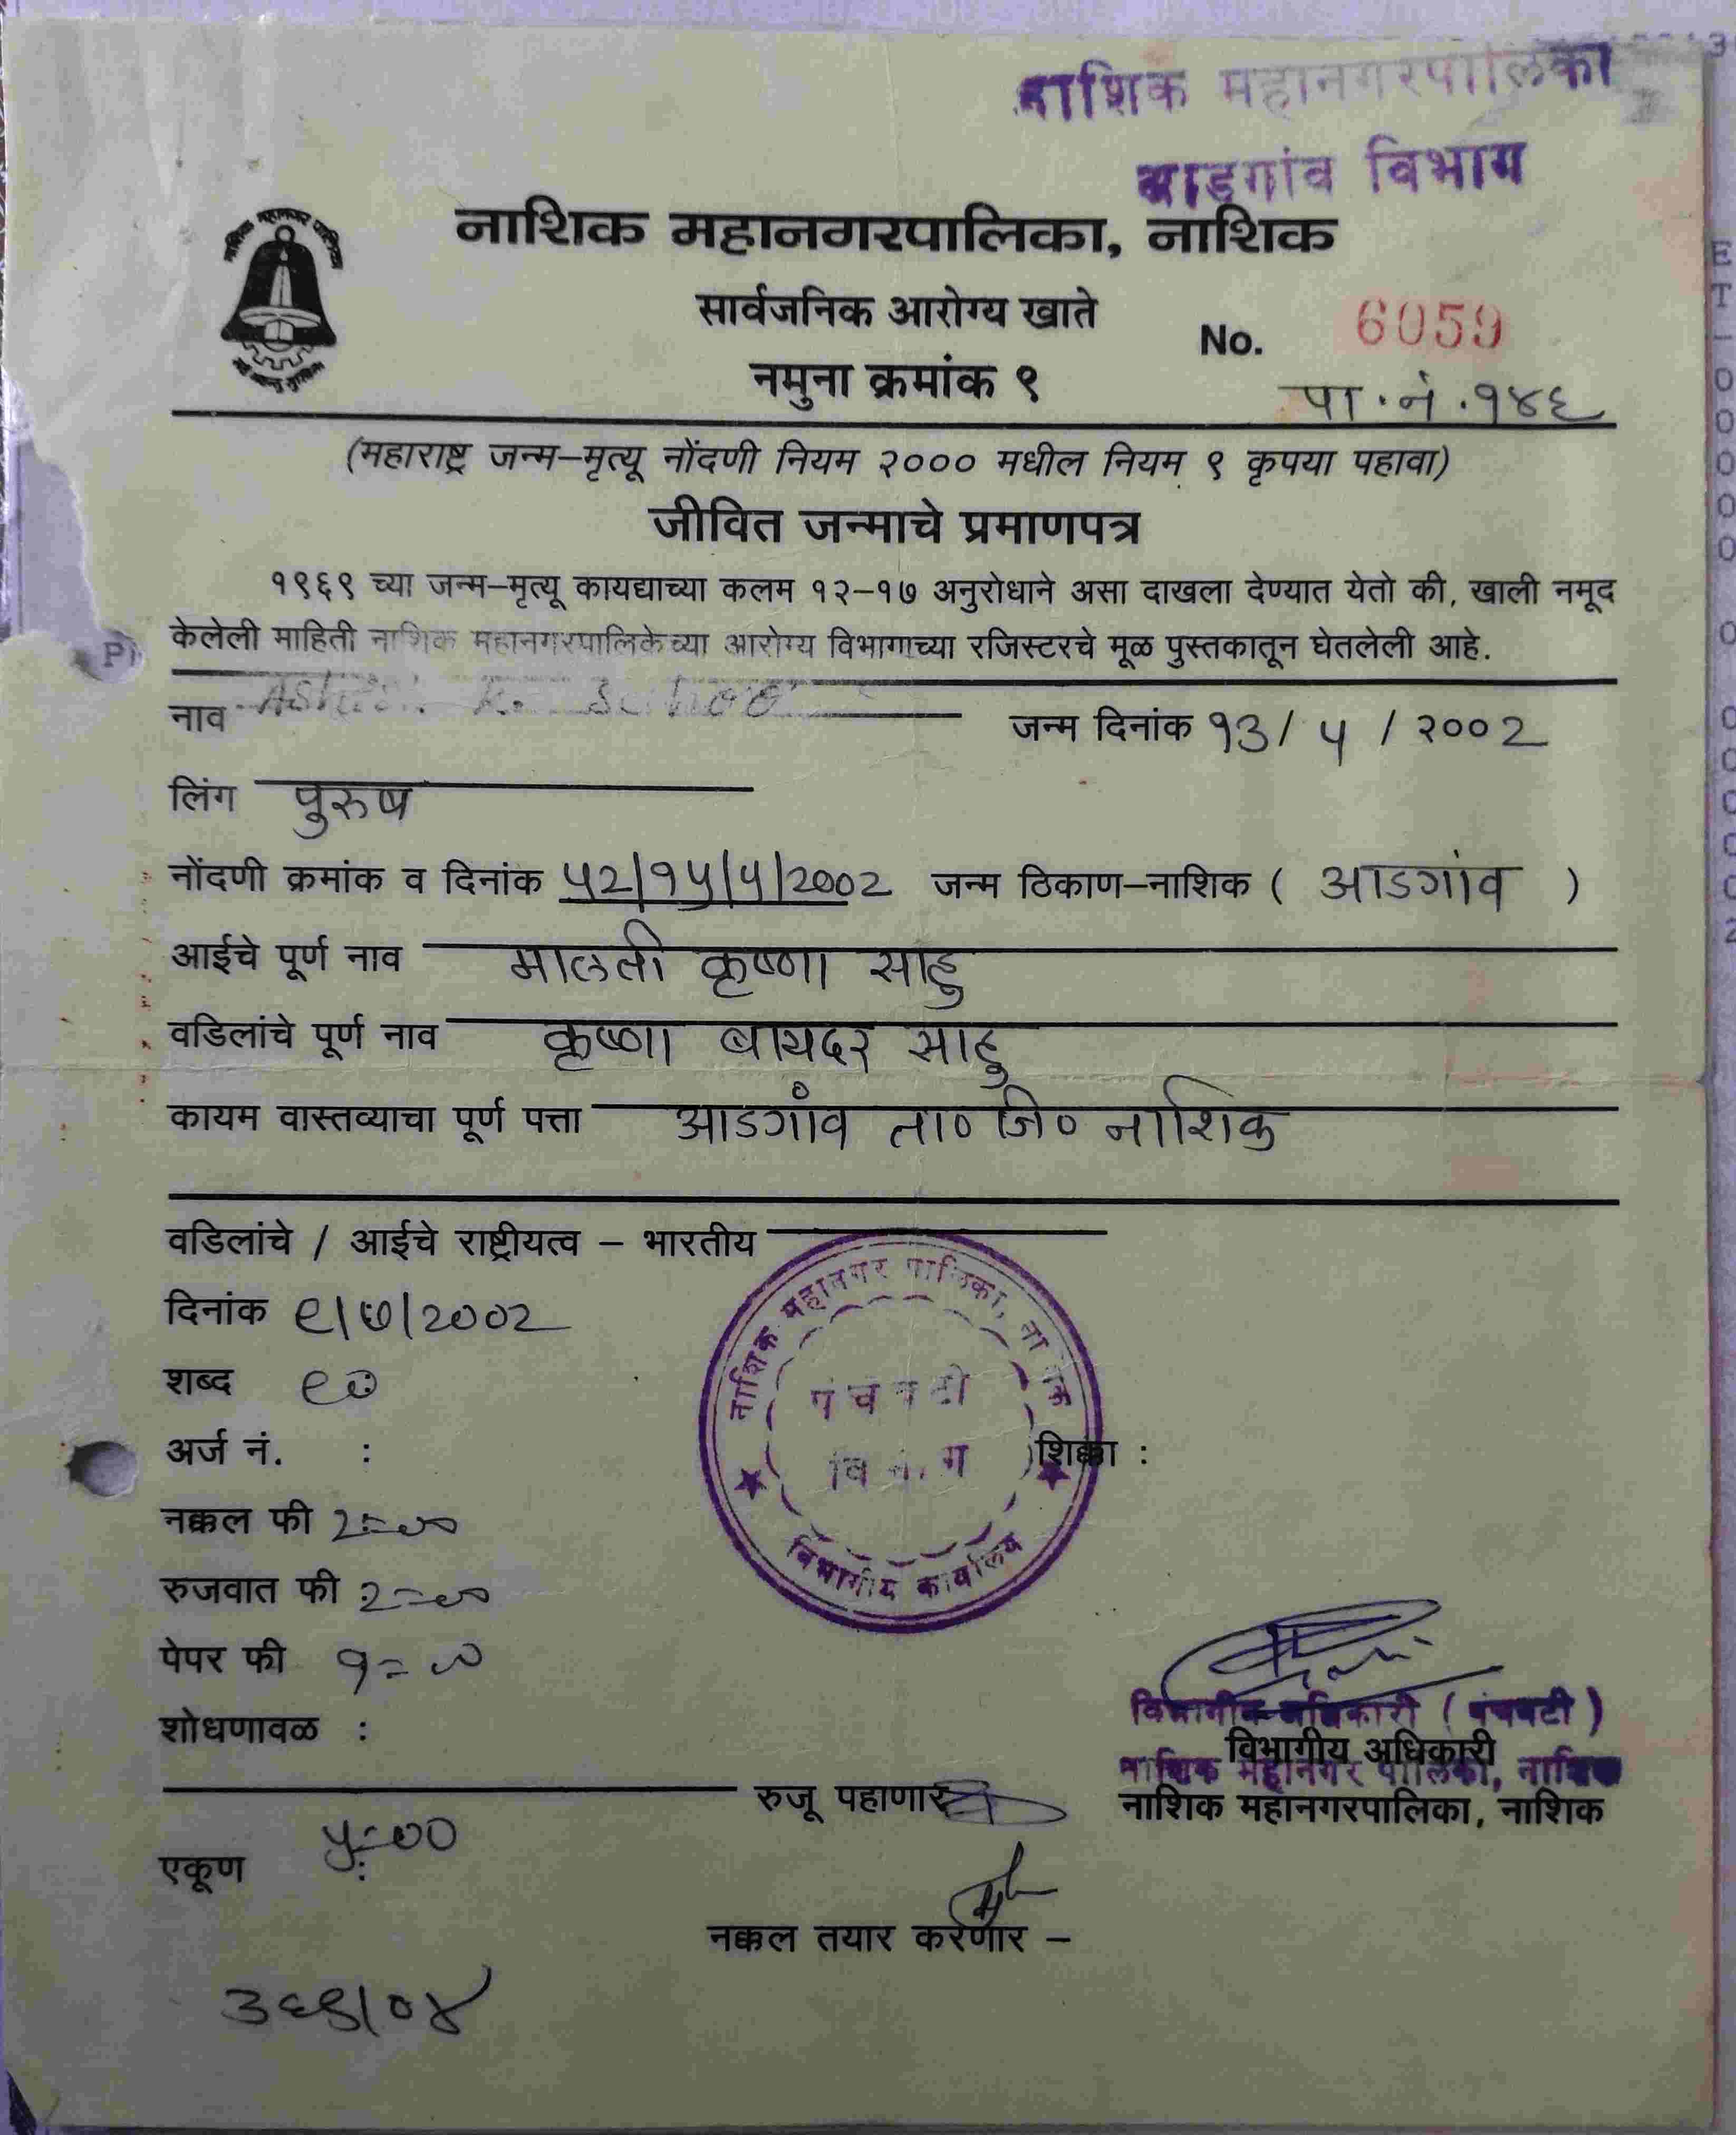 नाशिक महानगरपालिका
आडगांव विभाग
नाशिक महानगरपालिका, नाशिक
सार्वजनिक आरोग्य खाते
No. 6059
नमुना क्रमांक ९
पा.नं.१४६
(महाराष्ट्र जन्म–मृत्यू नोंदणी नियम २००० मधील नियम ९ कृपया पहावा)
जीवित जन्माचे प्रमाणपत्र
१९६९ च्या जन्म–मृत्यू कायद्याच्या कलम १२–१७ अनुरोधाने असा दाखला देण्यात येतो की, खाली नमूद
केलेली माहिती नाशिक महानगरपालिकेच्या आरोग्य विभागाच्या रजिस्टरचे मूळ पुस्तकातून घेतलेली आहे.
नाव K. जन्म दिनांक १3/ ५ / २००2
लिंग पुरुष
नोंदणी क्रमांक व दिनांक ५2/१५/५/2002 जन्म ठिकाण–नाशिक ( आडगांव )
आईचे पूर्ण नाव मालती कृष्णा साहु
वडिलांचे पूर्ण नाव कृष्णा बायदर साहु
कायम वास्तव्याचा पूर्ण पत्ता आडगाँव ता० जि० नाशिक
वडिलांचे / आईचे राष्ट्रीयत्व – भारतीय
दिनांक ९/७/2002
शब्द
नाशिक महानगर पालिका, नाशिक
पंचवटी
विभाग
विभागीय कार्यालय
अर्ज नं. :
शिक्का :
नक्कल फी 2=00
रुजवात फी 2=00
पेपर फी १=00
शोधणावळ :
विभागीय अधिकारी ( पंचवटी )
विभागीय अधिकारी
नाशिक महानगर पालिका, नाशिक
नाशिक महानगरपालिका, नाशिक
रुजू पहाणार
एकूण ५=00
नक्कल तयार करणार –